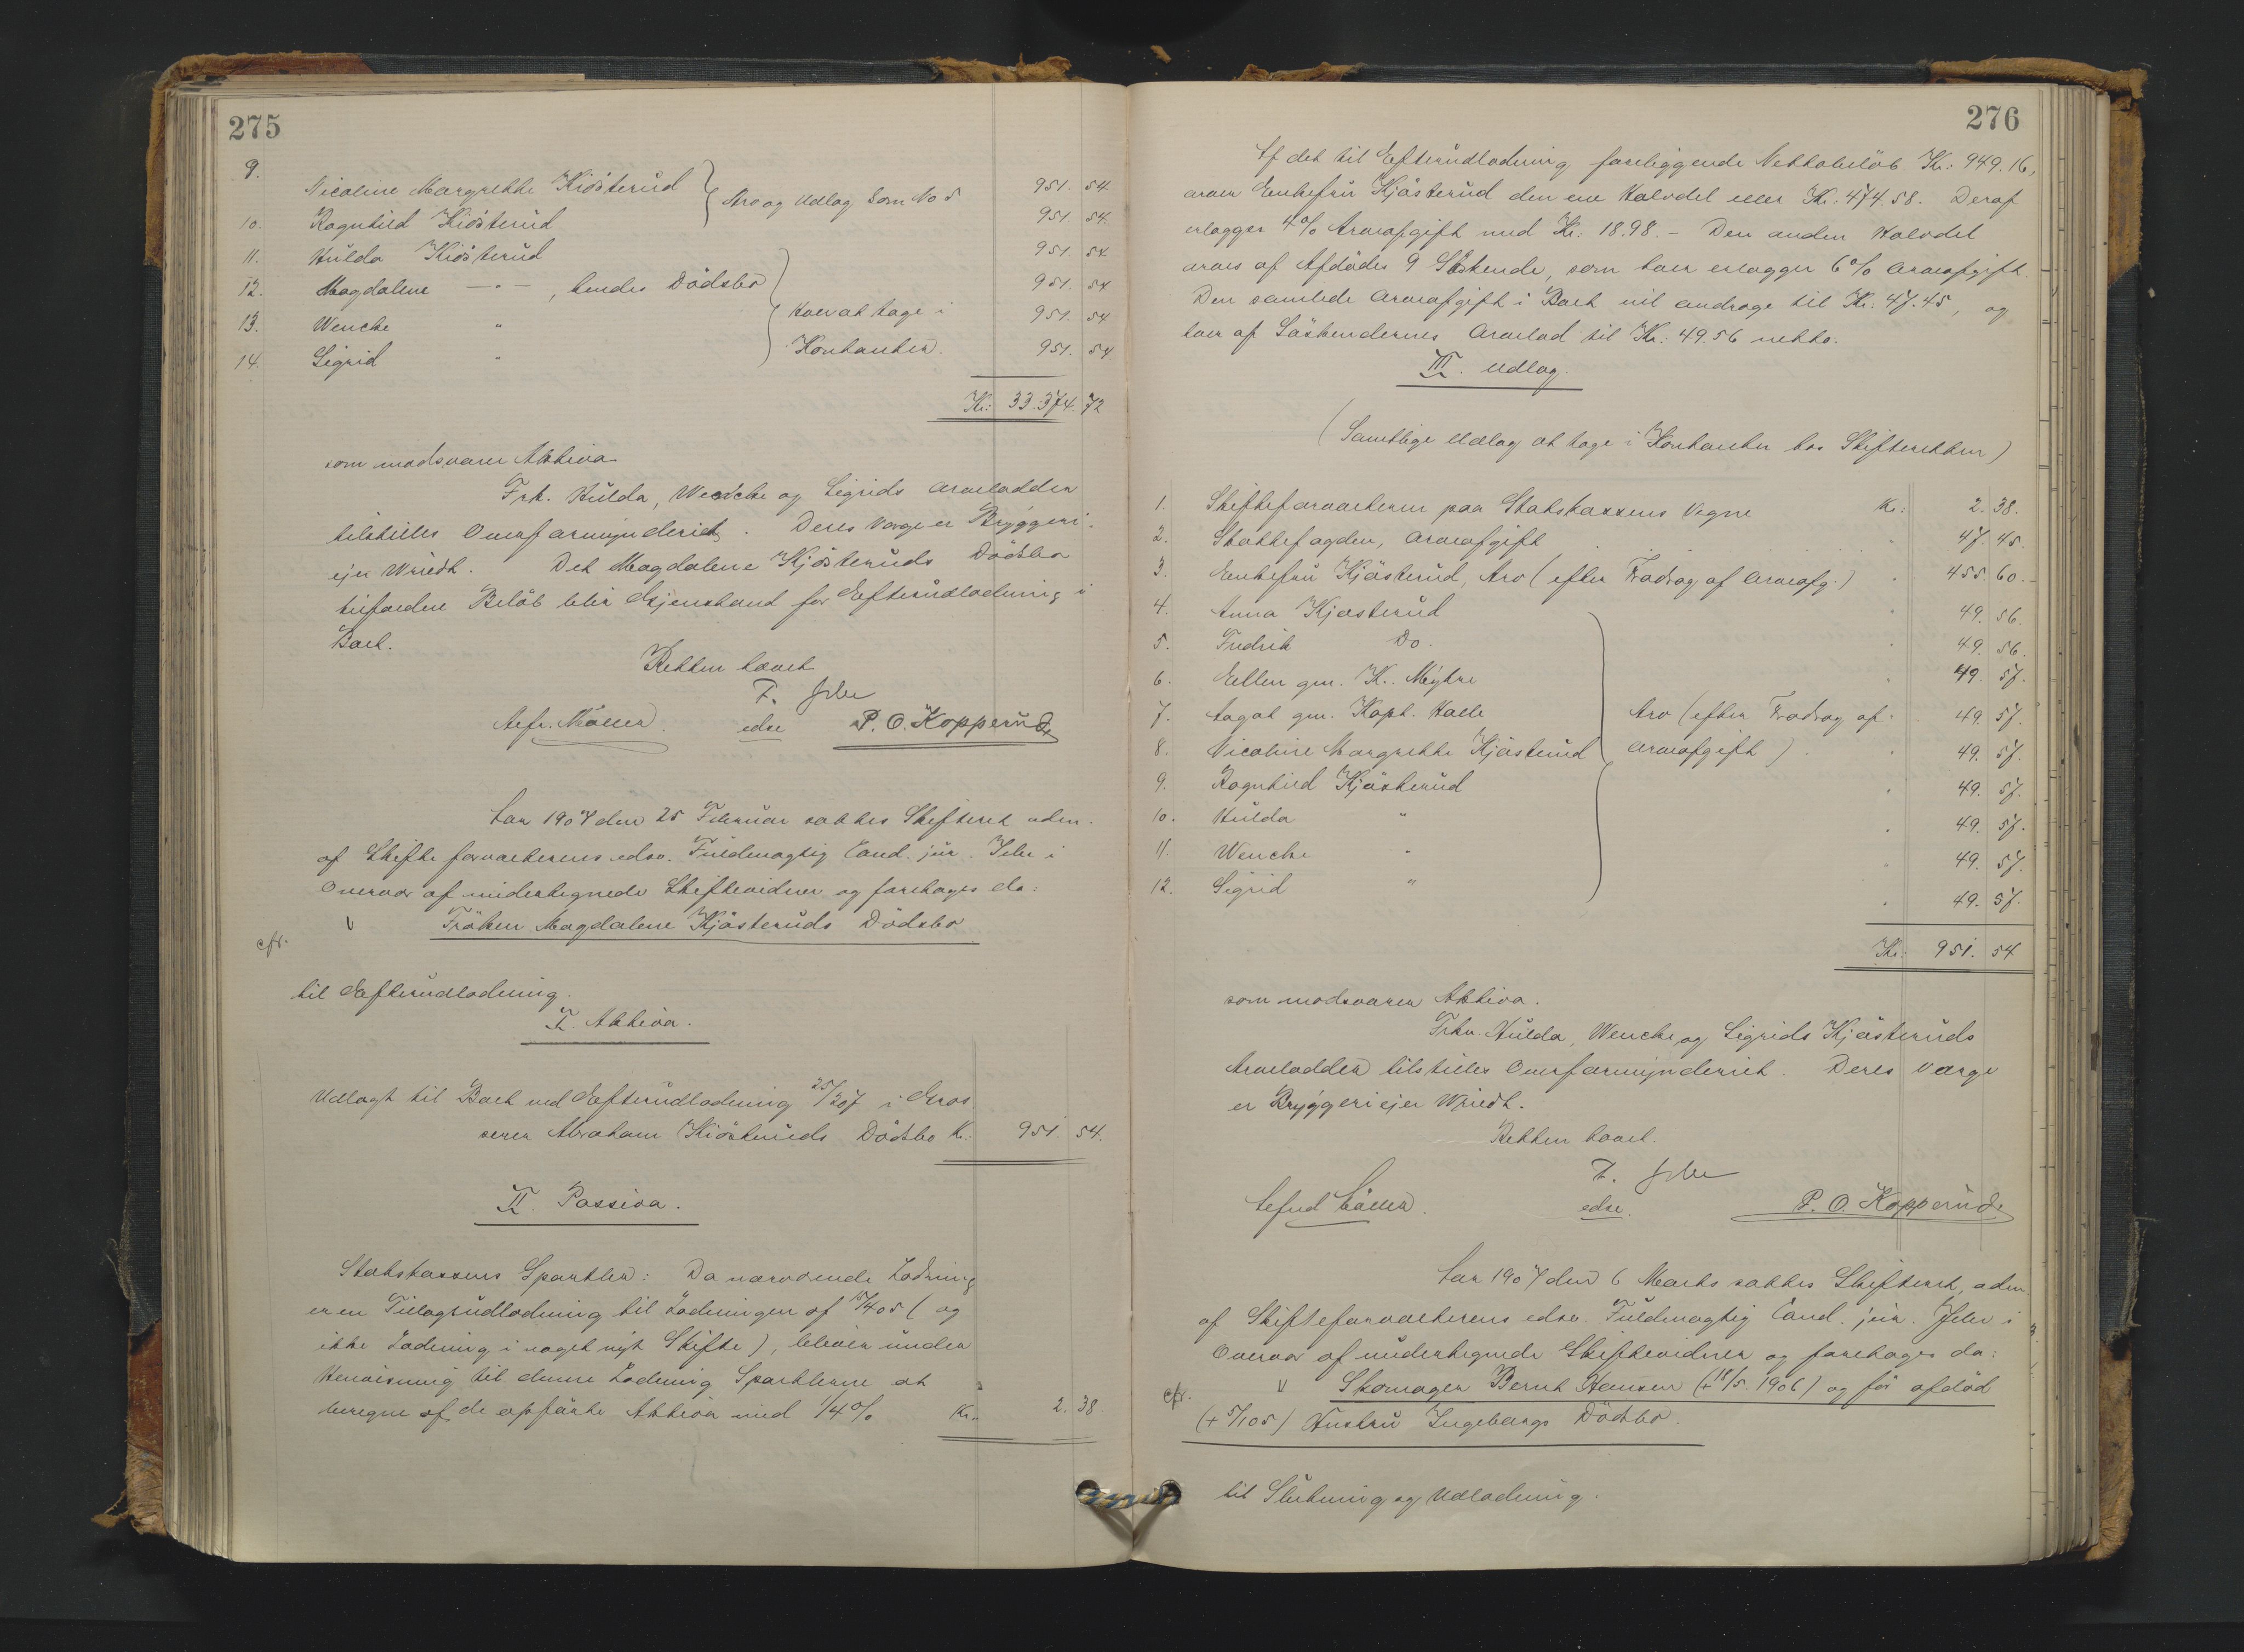 275
9. Nicoline Margrethe Kiøsterud } Arv og Udlæg som No 5 951. 54
10. Ragnhild Kiøsterud 951. 54.
11. Hulda Kiøsterud 951. 54
12. Magdalene —"— , hendes Dødsbo 951. 54
13. Wenche " } Hver at tage i 951. 54
14. Sigrid " Kontanter. 951. 54
Kr: 33.374. 72
som modsvarer Aktiva
Frk. Hulda, Wenche og Sigrids Arvelodder
tilstilles Overformynderiet. Deres Værge er Bryggeri-
ejer Wriedt. Det Magdalene Kjøsteruds Dødsbo
tilfaldne Beløb blir Gjenstand for Efterudlodning i
Boet.
Retten hævet
F. 
 Møller. edsv P. O. Kopperud
Aar 1907 den 25 Februar sattes Skifteret adm.
af Skifteforvalterens edsv. Fuldmægtig Cand. jur. i
Overvær af undertegnede Skiftevidner og foretoges da:
cfr. v Frøken Magdalene Kjøsteruds Dødsbo
til Efterudlodning.
I. Aktiva.
Udlagt til Boet ved Efterudlodning 25/2 07 i Gros
serer Abraham Kiøsteruds Dødsbo Kr: 951. 54.
II. Passiva.
Statskassens Sportler: Da nærværende Lodning
er en Tillægsudlodning til Lodningen af 15/4 05 (og
ikke Lodning i noget nyt Skifte), bliver under
Henvisning til denne Lodning Sportlerne at
beregne af de opførte Aktiva med 1/4 % Kr. 2. 38.
276
Af det til Efterudlodning foreliggende Nettobeløb Kr: 949.16,
arver Enkefru Kjøsterud den ene Halvdel eller Kr. 474.58. Deraf
erlægges 4% Arveafgift med Kr: 18.98. – Den anden Halvdel
arves af Afdødes 9 Søskende, som hver erlægger 6% Arveafgift.
Den samlede Arveafgift i Boet vil andrage til Kr: 47.45, og
hver af Søskendernes Arvelod til Kr: 49.56 netto.
III. Udlæg.
(Samtlige Udlæg at tage i Kontanter hos Skifteretten)
1. Skifteforvalteren paa Statskassens Vegne Kr: 2. 38.
2. Skattefogden, Arveafgift . . . . " 47. 45.
3. Enkefru Kjøsterud, Arv (efter Fradrag af Arveafg.) " 455. 60.
4. Anna Kjøsterud " 49. 56.
5. Fredrik Do. " 49. 56.
6. Ellen gm. K. Myhre " 49. 57.
7. Aagot gm. Kapt. Halle } Arv (efter Fradrag af " 49. 57.
8. Nicoline Margrethe Kjøsterud Arveafgift) " 49. 57.
9. Ragnhild Kjøsterud " 49. 57.
10. Hulda " " 49. 57.
11. Wenche " " 49. 57.
12. Sigrid " " 49. 57.
Kr: 951. 54
som modsvarer Aktiva.
Frkn. Hulda, Wenche og Sigrids Kjøsteruds
Arvelodder tilstilles Overformynderiet. Deres Værge
er Bryggeriejer Wriedt.
Retten hævet.
F. 
 Møller. edsv. P. O. Kopperud
Aar 1907 den 6 Marts sattes Skifteret, adm
af Skifteforvalterens edsv. Fuldmægtig Cand. jur. i
Overvær af undertegnede Skiftevidner og foretoges da:
cfr. v Skomager Bernt Hansen (+ 18/5 1906) og før afdød
(+ 5/1 05) Hustru Ingeborgs Dødsbo.
til Slutning og Udlodning.